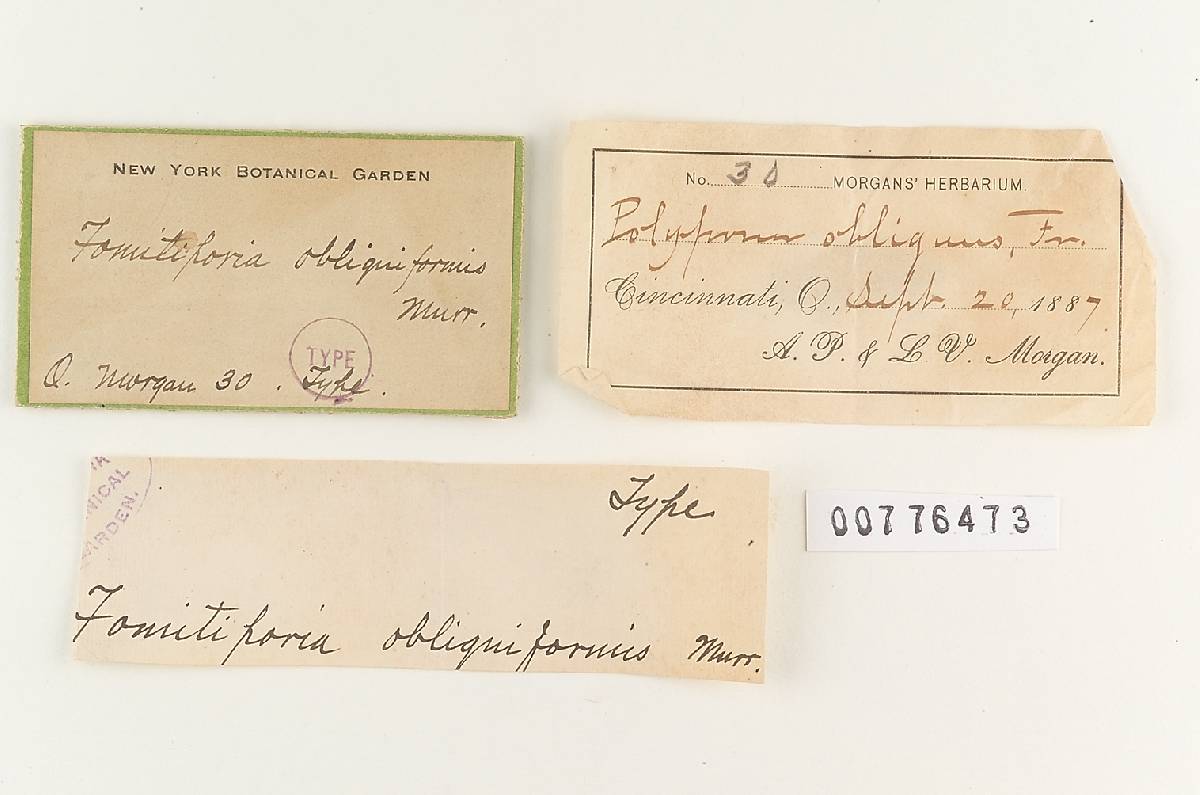 NEW YORK BOTANICAL GARDEN
Fomitiporia obliquiformis
Murr.
TYPE
O. Morgan 30 . Type.
No. 30 MORGANS' HERBARIUM.
Polyporus obliquus, Fr.
Cincinnati, O., Sept. 20, 1887
A. P. & L V. Morgan.
NICAL
ARDEN.
Type
Fomitiporia obliquiformis Murr.
00776473